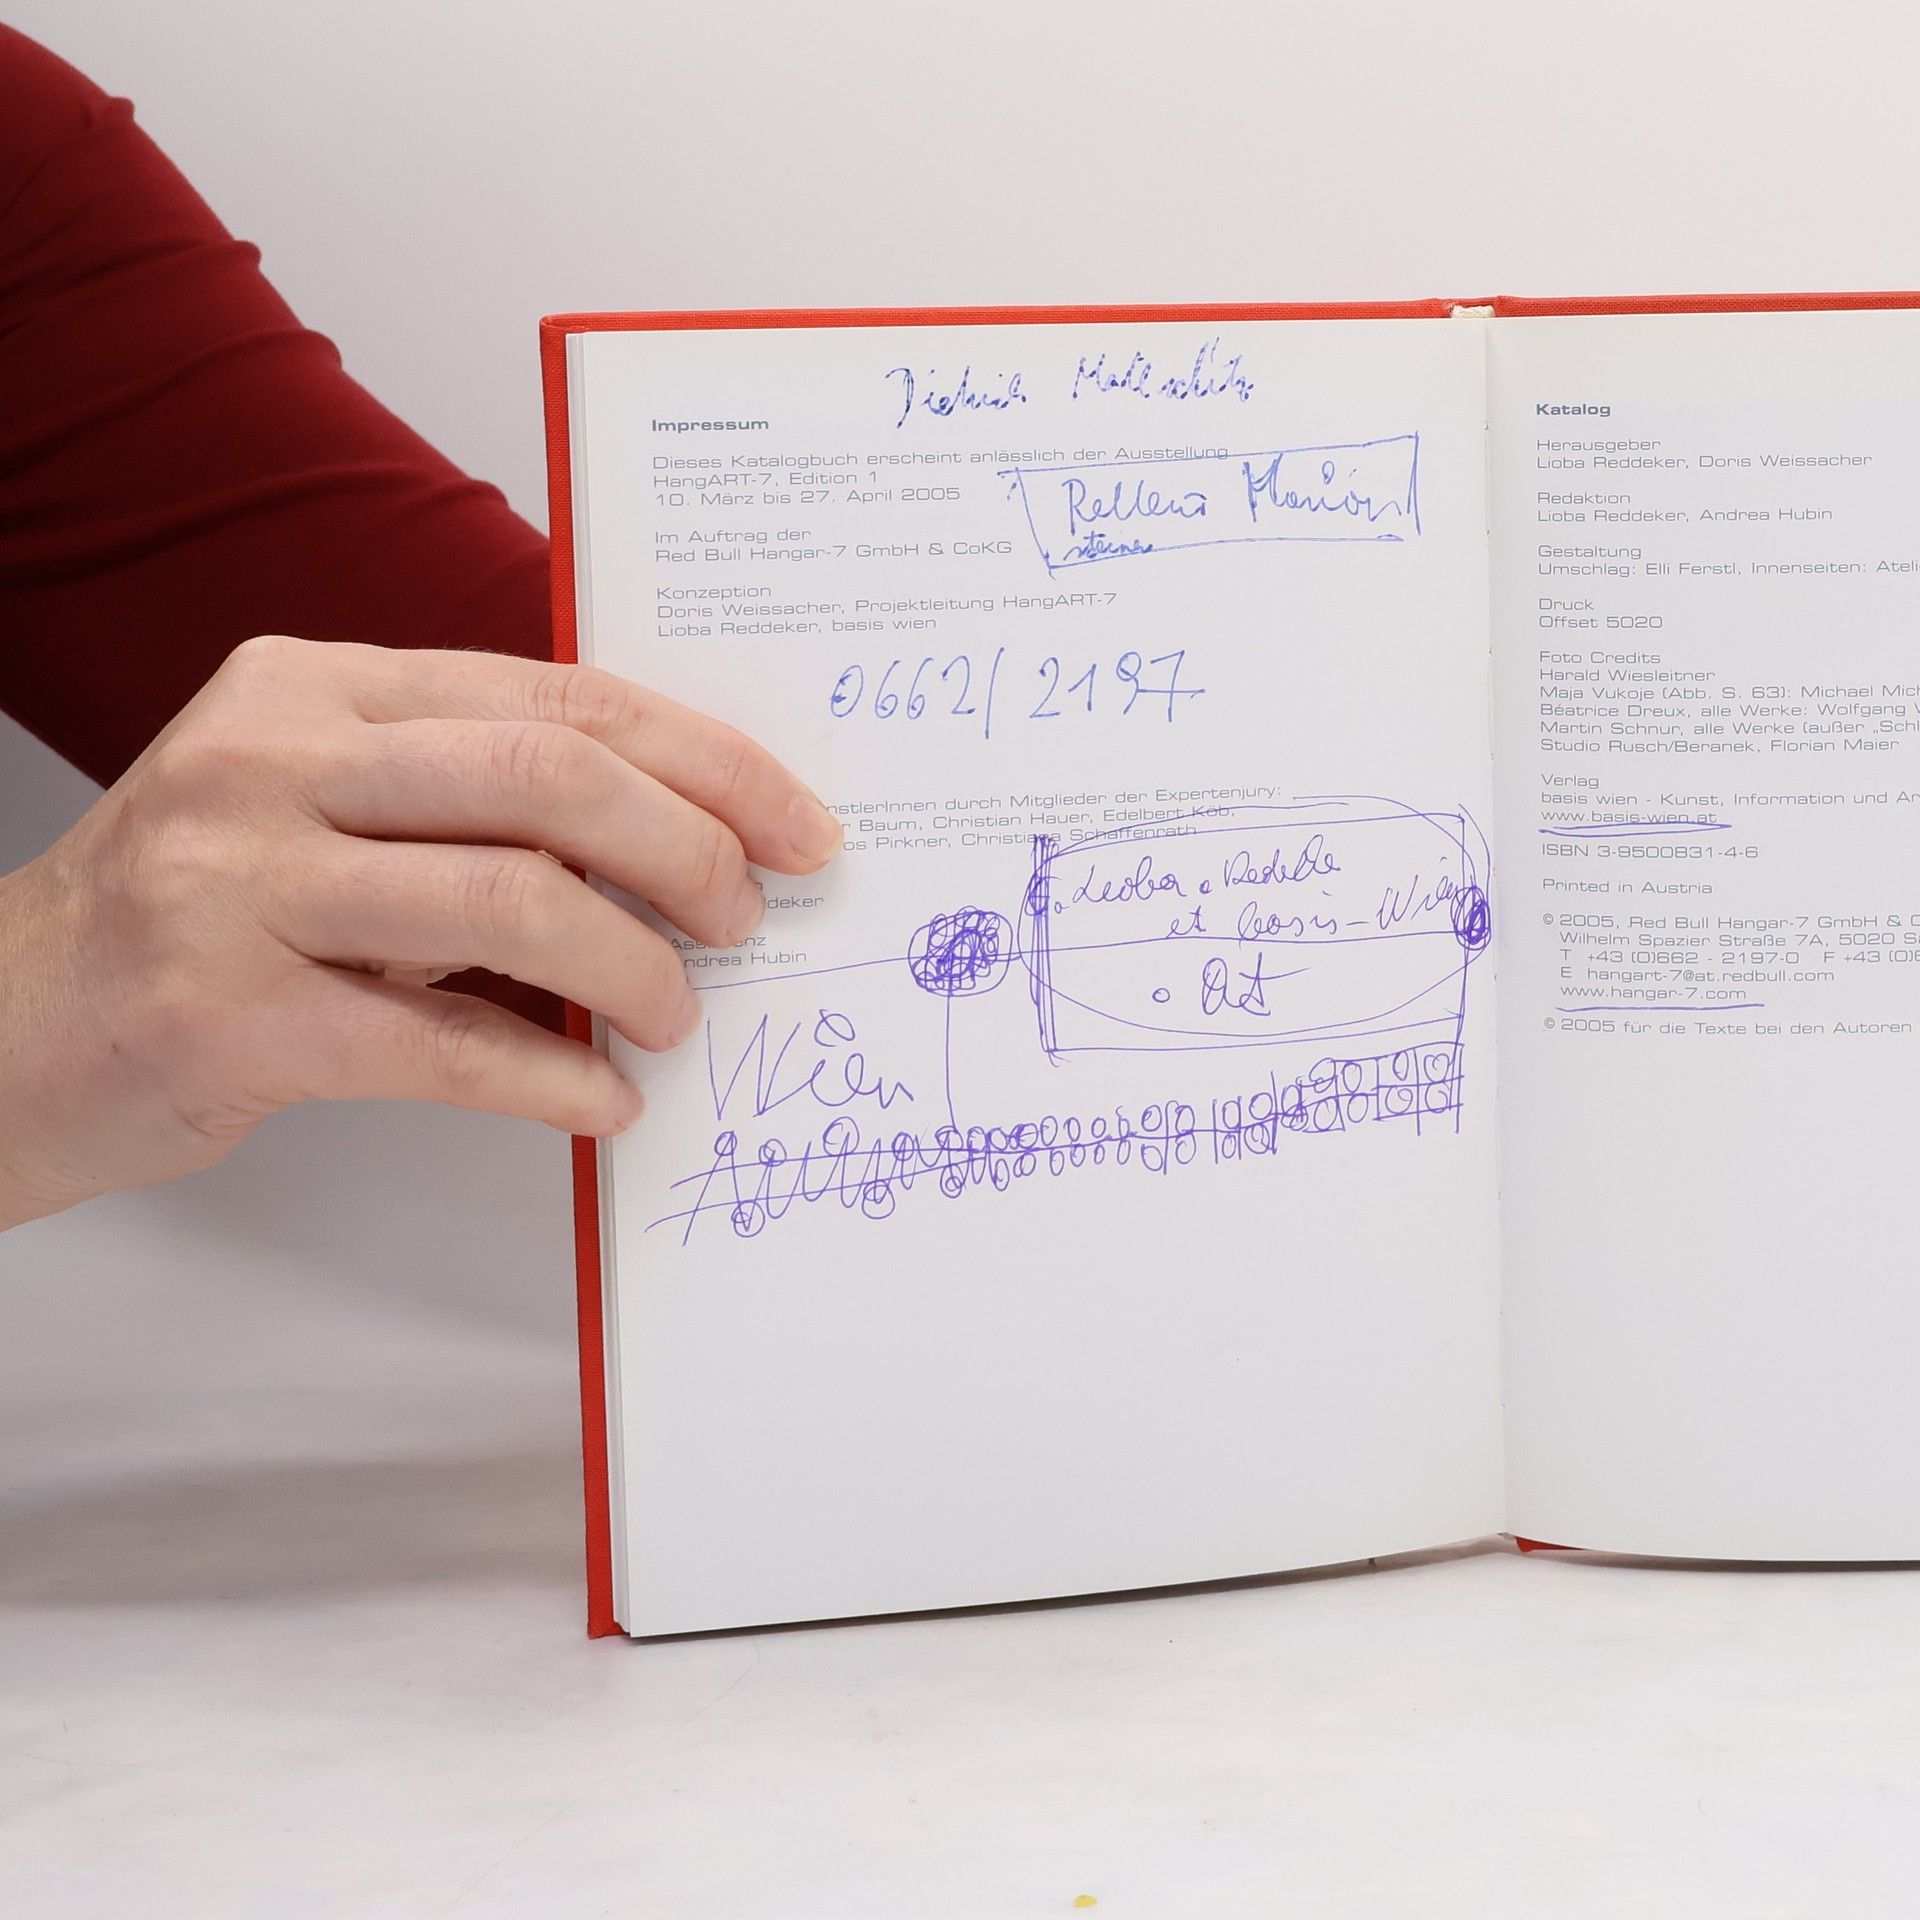 Dietrich Mateschitz
Impressum
Dieses Katalogbuch erscheint anlässlich der Ausstellung
HangART-7, Edition 1
10. März bis 27. April 2005
Im Auftrag der
Red Bull Hangar-7 GmbH & CoKG
steiner
Konzeption
Doris Weissacher, Projektleitung HangART-7
Lioba Reddeker, basis wien
0662/2197
nstlerInnen durch Mitglieder der Expertenjury:
r Baum, Christian Hauer, Edelbert Köb,
os Pirkner, Christiana Schaffenrath
deker
et basis-Wien
nz
ndrea Hubin
. at
Wien
Katalog
Herausgeber
Lioba Reddeker, Doris Weissacher
Redaktion
Lioba Reddeker, Andrea Hubin
Gestaltung
Umschlag: Elli Ferstl, Innenseiten: Ateli
Druck
Offset 5020
Foto Credits
Harald Wiesleitner
Maja Vukoje (Abb. S. 63): Michael Mich
Béatrice Dreux, alle Werke: Wolfgang
Martin Schnur, alle Werke (außer „Schl
Studio Rusch/Beranek, Florian Maier
Verlag
basis wien - Kunst, Information und Ar
www.basis-wien.at
ISBN 3-9500831-4-6
Printed in Austria
© 2005, Red Bull Hangar-7 GmbH & C
Wilhelm Spazier Straße 7A, 5020 S
T +43 (0)662 - 2197-0 F +43 (0)6
E hangart-7@at.redbull.com
www.hangar-7.com
© 2005 für die Texte bei den Autoren